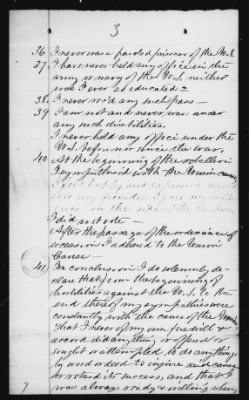 3
36 I never was a paroled prisoner of the U.S.
37 I have never held any office in the
army or navy of the U.S. neither
was I ever so educated =
38. I never rec'd any such pass —
39 I am not and never was under
any such disabilities.
I never held any office under the
U.S. before nor since the war,
40 At the beginning of the rebellion
I sympathised with the Union cause,
I did not vote —
After the passage of the ordinance of
secession I adhered to the Union
Cause —
41 In conclusion I do solemnly de-
clare that from the beginning of
hostilities against the U.S. to the
end thereof my sympathies were
constantly with the cause of the
That I never of my own free will &
accord did anything, or offered or
sought or attempted to do anything,
by word or deed to injure said cause
or retard its success, and that I
was always ready & willing when
7